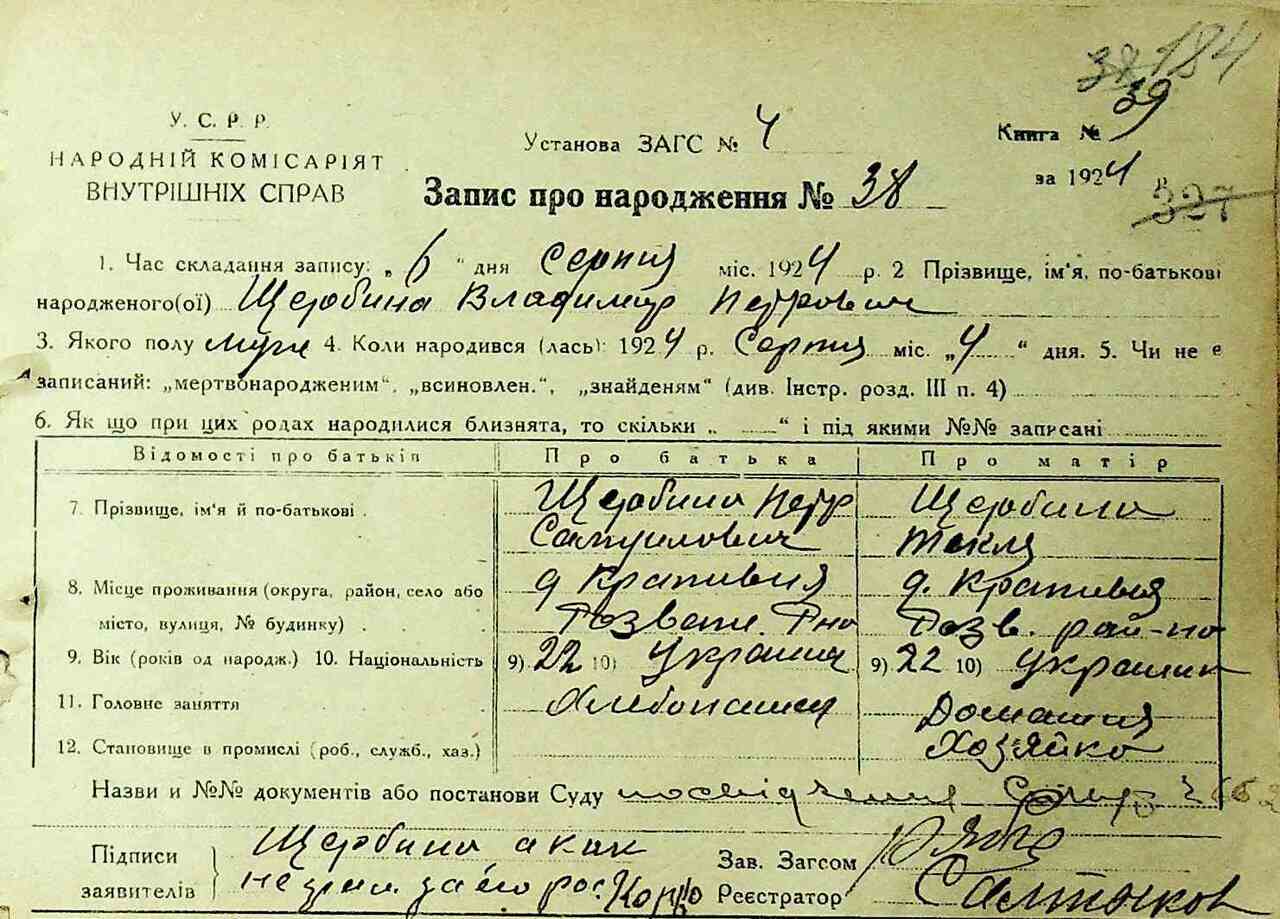 184
39
У. С. Р. Р.
НАРОДНІЙ КОМІСАРІЯТ
ВНУТРІШНІХ СПРАВ
Установа ЗАГС № 4
Книга №
за 1924 р.
327
Запис про народження № 38
1. Час складання запису: „6“ дня Серпня міс. 1924 р. 2 Прізвище, ім'я, по-батькові
народженого(ої) Щербина Владимир Петрович
3. Якого полу муж 4. Коли народився (лась): 1924 р. Серпня міс. „4“ дня. 5. Чи не є
записаний: „мертвонародженим“, „всиновлен.“, „знайденям“ (див. Інстр. розд. III п. 4)
6. Як що при цих родах народилися близнята, то скільки „ “ і під якими №№ записані
Відомості про батьків Про батька Про матір
7. Прізвище, ім'я й по-батькові . Щербина Петр Щербина
Текля
8. Місце проживання (округа, район, село або д. Крапивня д. Крапивня
місто, вулиця, № будинку) . . . Розв. рай-на
9. Вік (років од народж.) 10. Національність 9) 22 10) 9) 22 10)
11. Головне заняття Домашня
12. Становище в промислі (роб., служб., хаз.) Хозяйка
Назви и №№ документів або постанови Суду посвідчення
Підписи Щербина а как Зав. Загсом
заявителів Реєстратор